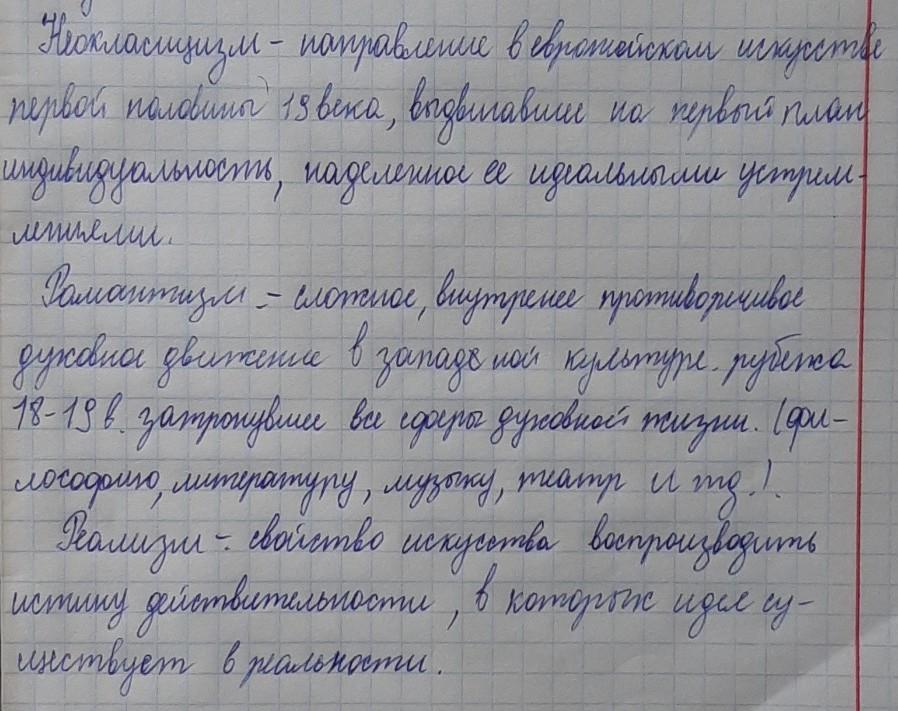 Неокласицизм - направление в европейском искусстве
первой половины 19 века, выдвигавшие на первый план
индивидуальность, наделенное ее идеальными устрем-
лениями.
Романтизм - сложное, внутренее противоречивое
духовное движение в западеной культуре. рубежа
18-19 в. затронувшее все сферы духовной жизни. (фи-
лософию, литературу, музыку, театр и тд.).
Реализм - свойство искусства воспроизводить
истину действительности, в которых идея су-
ществует в реальности.